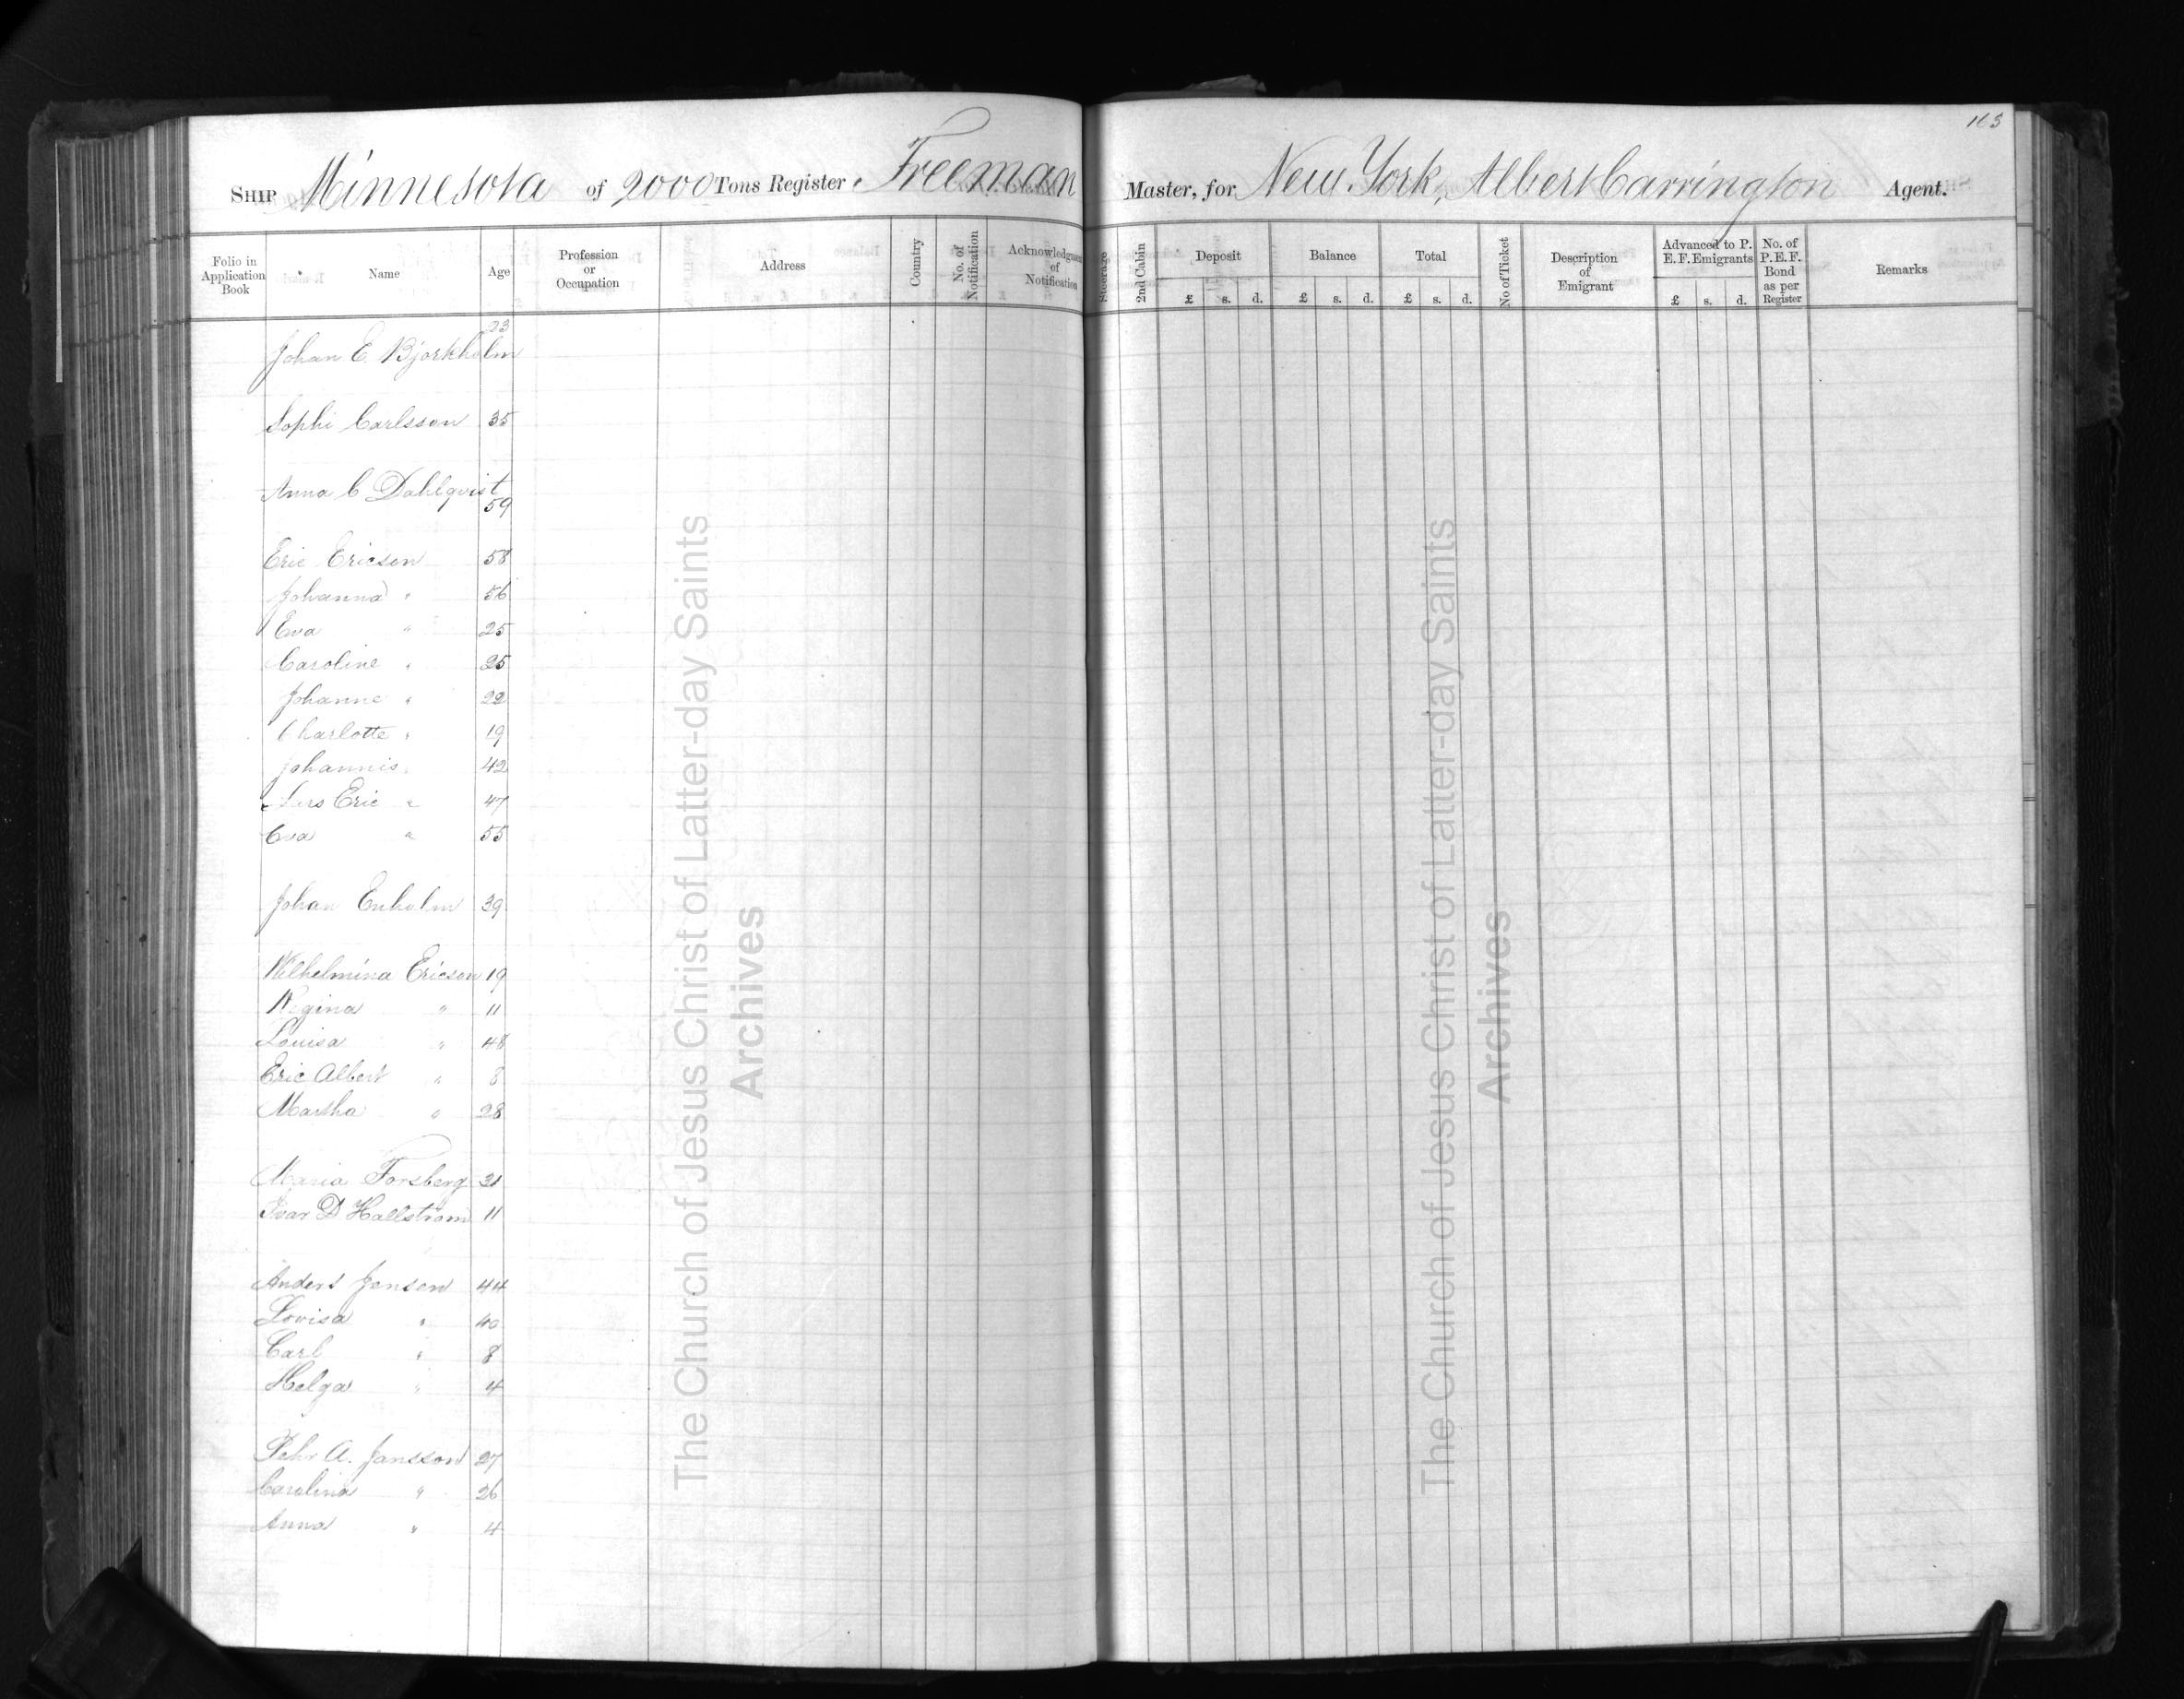 165
SHIP Minnesota of 2000 Tons Register. Freeman Master, for New York, Albert Carrington Agent.
Folio in Application Book Name Age Profession or Occupation Address Country No. of Notification Acknowledgment of Notification Steerage 2nd Cabin Deposit Balance Total No of Ticket Description of Emigrant Advanced to P. E. F. Emigrants No. of P.E.F. Bond as per Register Remarks
£ s. d. £ s. d. £ s. d. £ s. d.
Johan E. Bjorkholm 23
Sophi Carlsson 35
Anna C Dahlqvist 59
Eric Ericson 58
Johanna " 56
Eva " 25
Caroline " 25
Johanne " 22
Charlotte " 19
Johannis " 42
Lars Eric " 47
Eva " 55
Johan Enholm 39
Wilhelmina Ericson 19
Regina " 11
Louisa " 48
Eric Albert " 8
Martha " 28
Maria Forsberg 31
Ivar D Hallstrom 11
Anders Jensen 44
Lovisa " 40
Carl " 8
Helga " 4
Pehr A. Jansson 27
Carolina " 26
Anna " 4
The Church of Jesus Christ of Latter-day Saints
Archives
The Church of Jesus Christ of Latter-day Saints
Archives